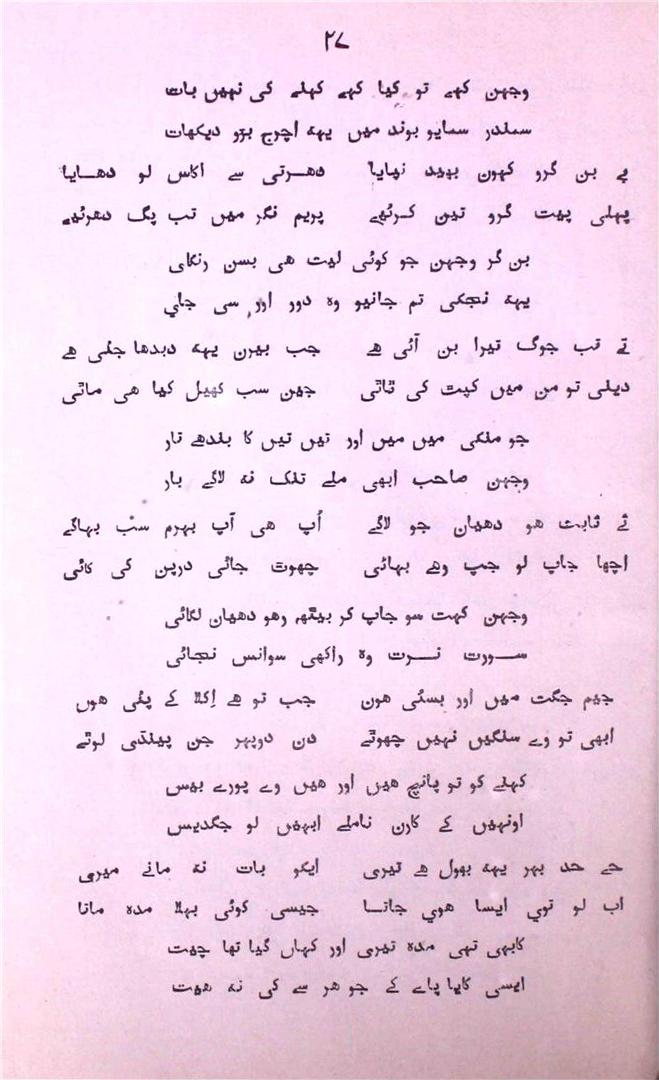 ۲۷
وجهن کہے تو کیا کہے کہنے کی نہیں بات
سمندر سمایو بوند میں یہہ اچرج بڑو دیکھات
بے بن گرو کہون بھید نپایا دھرتی سے اکاس لو دھایا
پہلی پیت گرو تین کرئیے پریم نگر میں تب پگ دھرئیے
بن گر وجهن جو کوئی لیت ھی بسن رنگای
یہہ نجکی تم جانیو وہ دور اور سی جاي
تے تب جوگ تیرا بن آئی ھے جب بیرن یہہ دبدھا جلی ھے
دیلی تو من میں کپت کی ٹاٹی جین سب کھیل کیا ھی ماٹی
جو منکی میں میں اور تیں تیں کا بندھے تار
وجهن صاحب ابھی ملے تنک نہ لاگے بار
ثے ثابت ھو دھیان جو لاگے اُپ ھی آپ بھرم سب بھاگے
اچھا جاپ لو جپ وھے بھائی چھوٹ جائی درپن کی کائی
وجهن کہت سو جاپ کر بیٹھہ رھو دھیان لگائی
سورت نرت وہ راکھی سوانس نجائی
جیم جگت میں اور بسئی ھون جب تو ھے اِکلا کے پئی ھوں
ابھی تو وے سنگیں نہیں چھوٹے دن دوپہر جن پینڈی لوٹے
کہنے کو تو پانچ ھیں اور ھیں وے پورے بیس
اونہیں کے کارن ناملے ابہیں لو جگدیس
حے حد بھر یہہ بھول ھے تیری ایکو بات نہ مانے میری
اب لو توي ایسا ھوي جاتا جیسی کوئی بھلا مدہ ماتا
کابھی تھی مدہ تیری اور کہاں گیا تھا چیت
ایسی کایا پاے کے جو ھر سے کی نہ ھیت